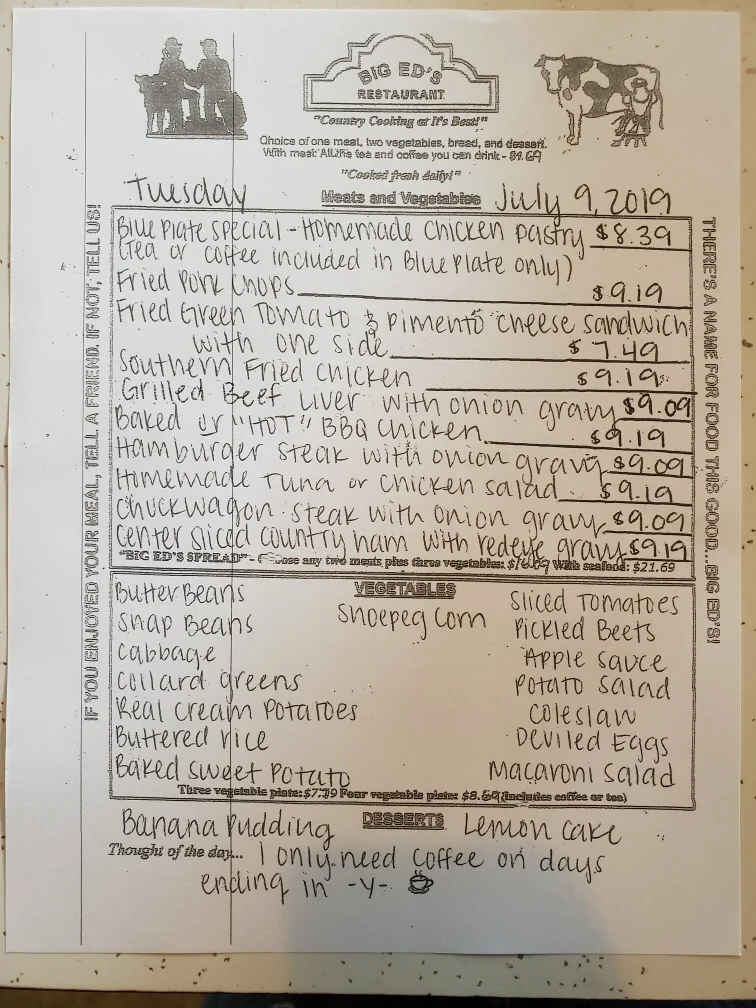 BIG ED'S
RESTAURANT
"Country Cooking at It's Best!"
Choice of one meat, two vegetables, bread, and dessert.
With meat: All the tea and coffee you can drink - $1.69
"Cooked fresh daily!"
Tuesday Meats and Vegetables July 9, 2019
Blue Plate Special - Homemade Chicken Pastry $8.39
(Tea or coffee included in Blue Plate only)
Fried Pork Chops $9.19
Fried Green Tomato & Pimento cheese sandwich
with one side $7.49
Southern Fried Chicken $9.19
Grilled Beef Liver with onion gravy $9.09
Baked or "HOT" BBQ Chicken $9.19
Hamburger steak with onion gravy $9.09
Homemade Tuna or Chicken salad $9.19
Chuckwagon steak with onion gravy $9.09
Center sliced country ham with redeye gravy $9.19
"BIG ED'S SPREAD" - Choose any two meats plus three vegetables: With seafood: $21.69
VEGETABLES
Butter Beans
Snap Beans
Cabbage
Collard greens
Real Cream Potatoes
Buttered rice
Baked sweet Potato
Shoepeg Corn
Sliced Tomatoes
Pickled Beets
Apple Sauce
Potato Salad
Coleslaw
Deviled Eggs
Macaroni Salad
Three vegetable plate: Four vegetable plate: (Includes coffee or tea)
Banana Pudding DESSERTS Lemon Cake
Thought of the day... I only need coffee on days
ending in -y-
IF YOU ENJOYED YOUR MEAL, TELL A FRIEND. IF NOT, TELL US!
THERE'S A NAME FOR FOOD THIS GOOD...BIG ED'S!